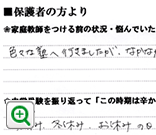 ■保護者の方より
※家庭教師をつける前の状況・悩んでいた
色々な塾へ行きましたが、なかなか
験を振り返って「この時期は辛か
み、冬休み、お休みの日